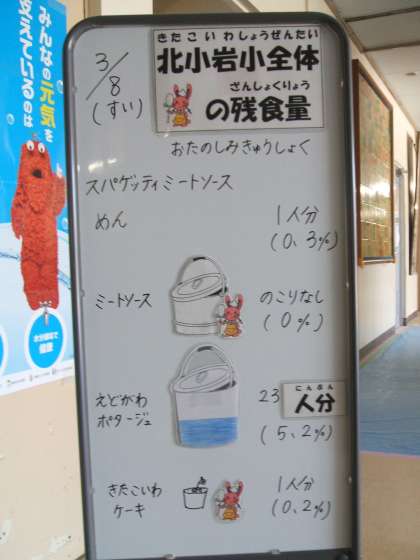 みんなの元気を
支えているのは
水分補給で
健康
3/8
(すい)
きたこいわしょうぜんたい
北小岩小全体
ざんしょくりょう
の残食量
おたのしみきゅうしょく
スパゲッティミートソース
めん
1人分
(0,3%)
ミートソース
のこりなし
(0%)
えどがわ
ポタージュ
23
にんぶん
人分
(5,2%)
きたこいわ
ケーキ
1人分
(0,2%)